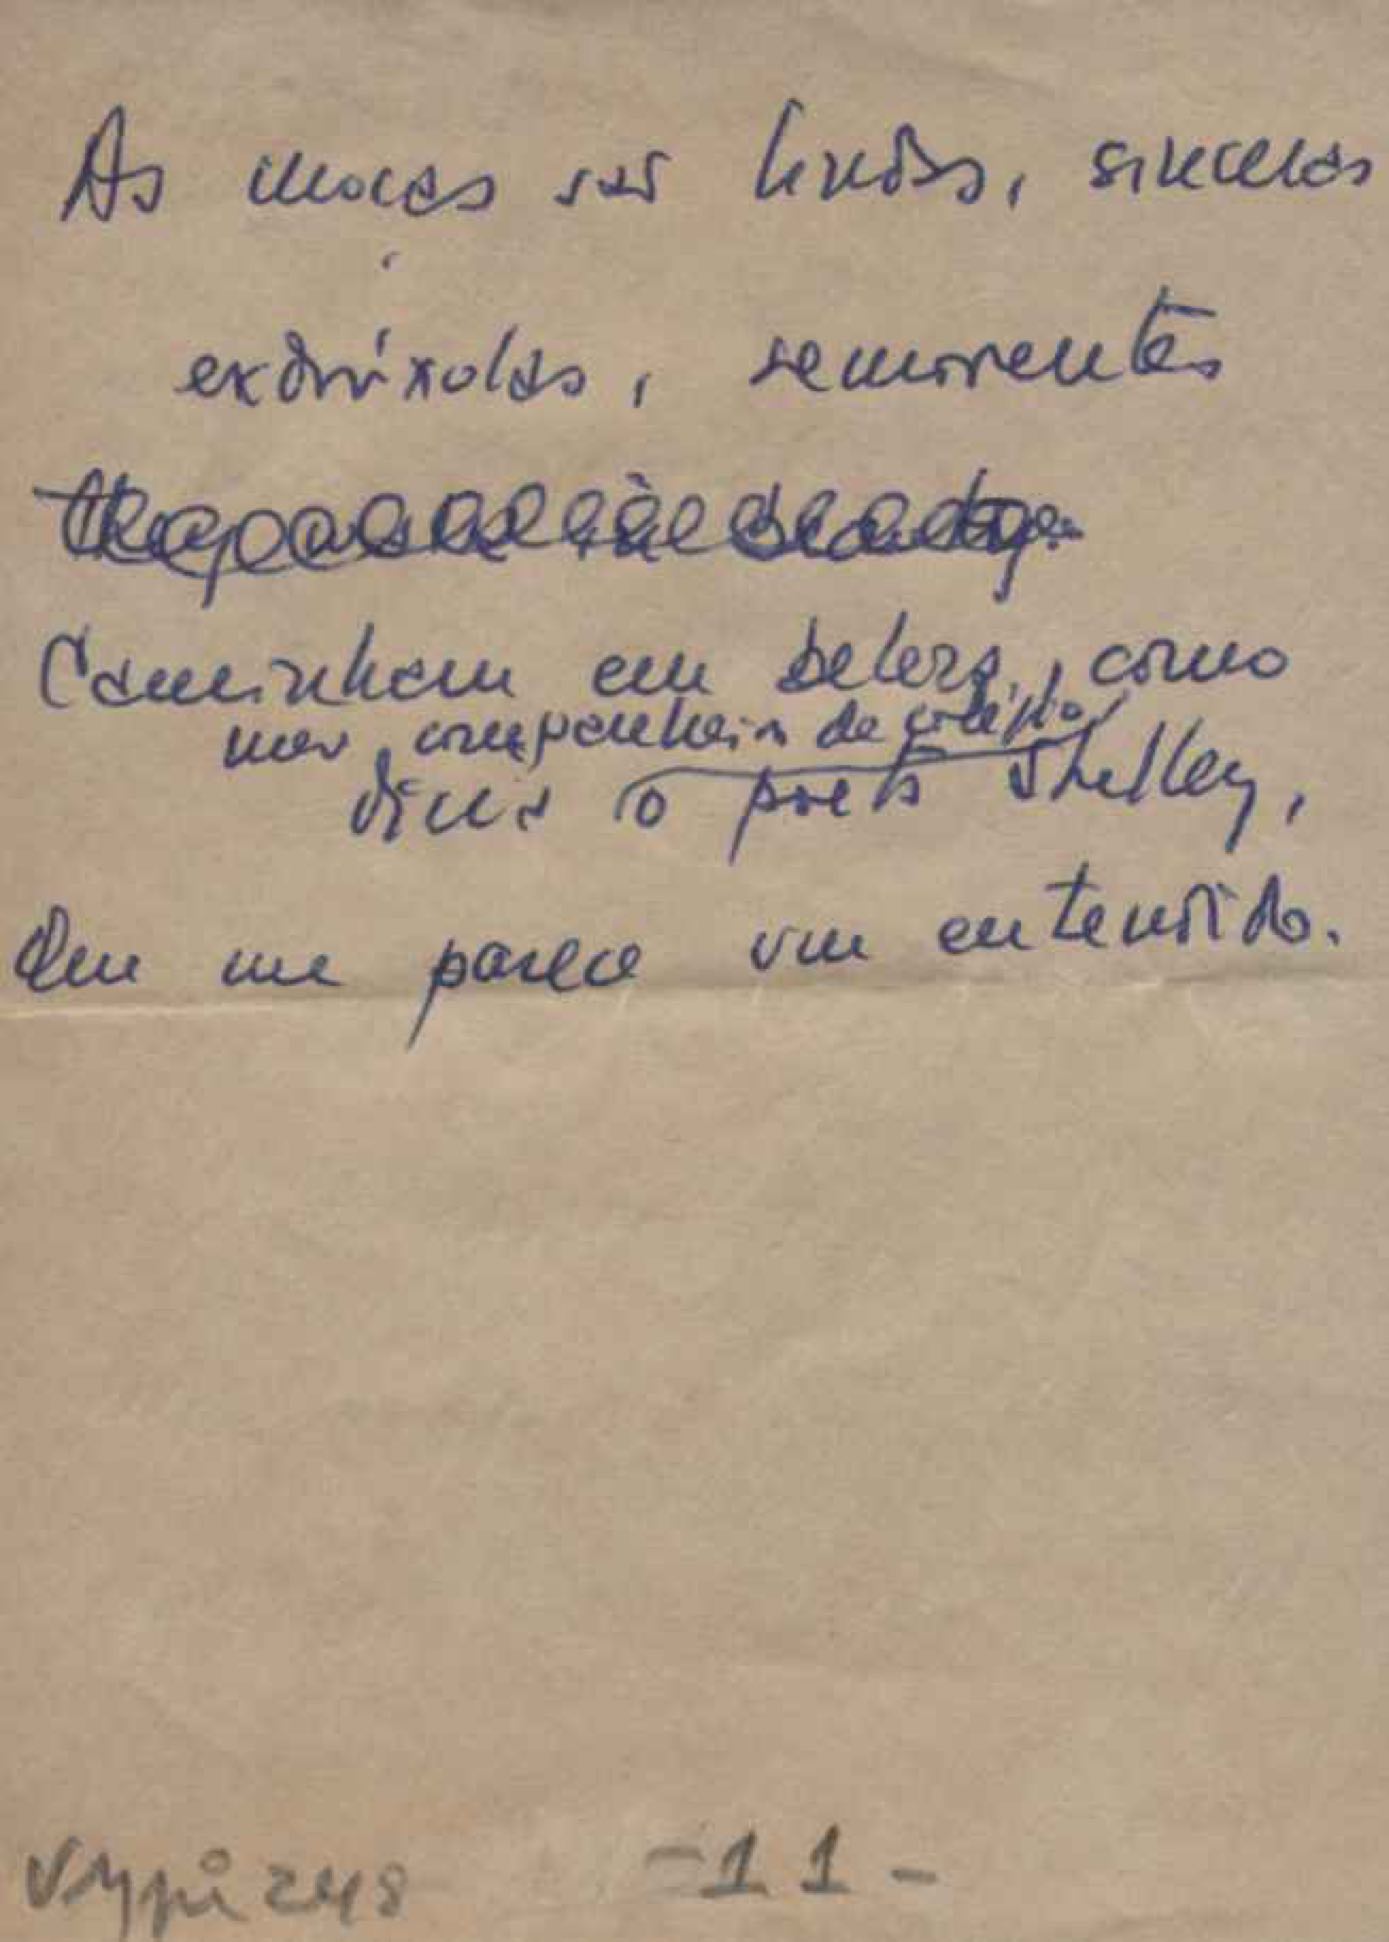 As moças são lindas, sinceras
exdrúxolas, semoventes
Caminham em beleza, como
meu companheiro de
diria o poeta Shelley,
Que me parece um entendido.
VMpi248
-11-